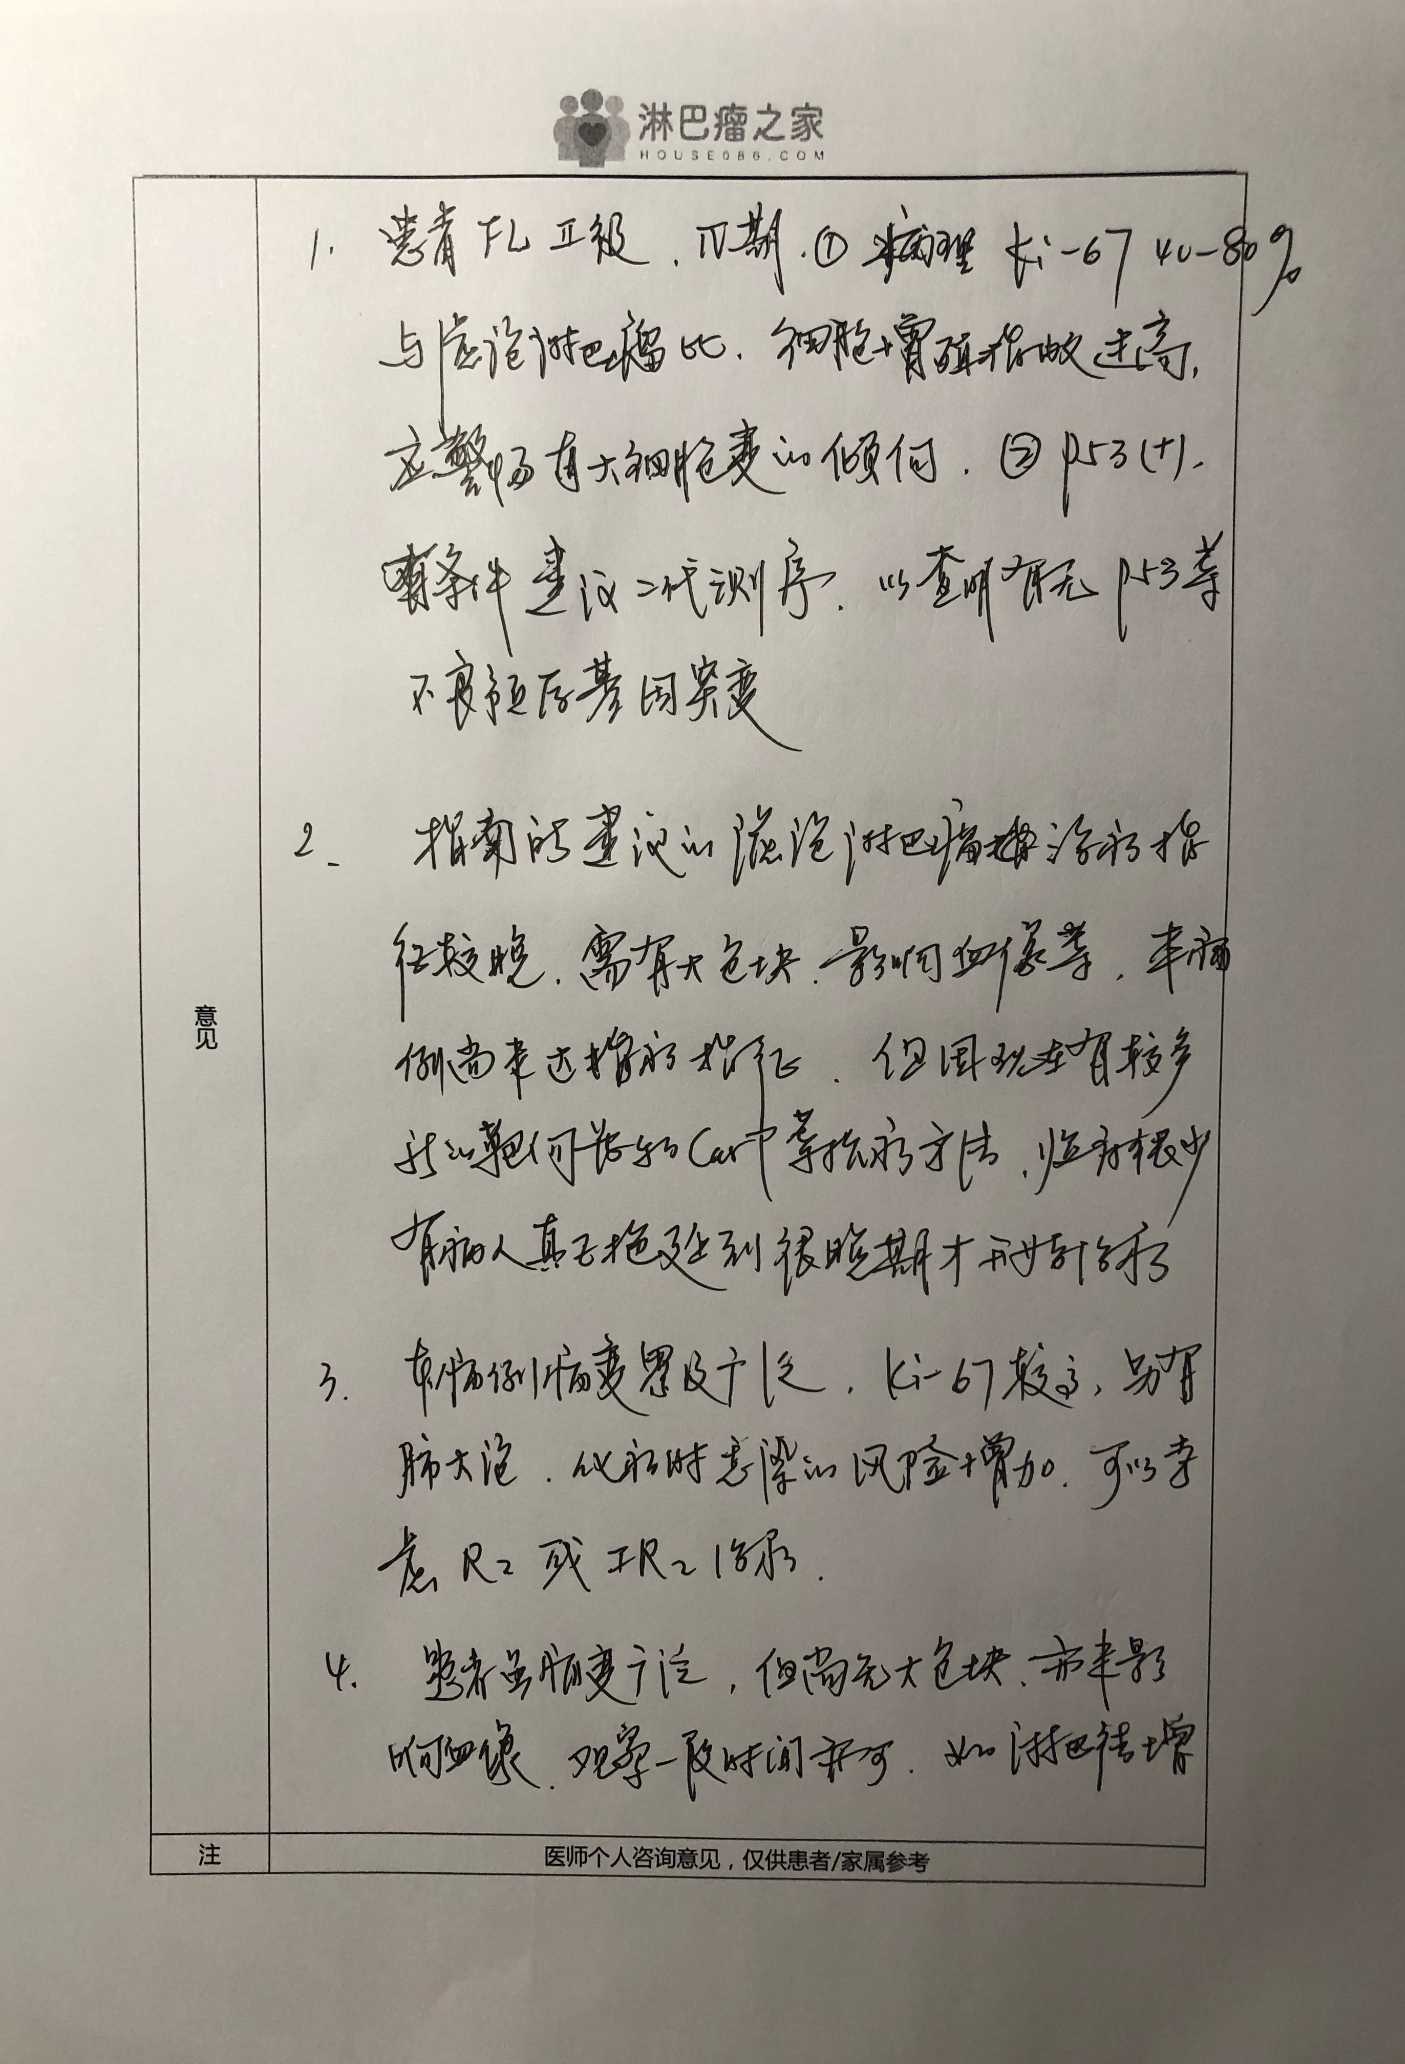 淋巴瘤之家
HOUSE086.COM
1. 患者FLⅡ级、Ⅳ期.①病理 Ki-67 40-80%
与滤泡淋巴瘤比.细胞增殖指数过高,
应警惕有大细胞变的倾向.②p53(+).
有条件建议二代测序.以查明有无p53等
不良预后基因突变
2. 指南所建议的滤泡淋巴瘤治疗指
征较晚.需有大包块.影响血象等.本病
例尚未达指征.但因现在有较多
新的靶向 Car-T等治疗方法.临床很少
有病人真正拖延到很晚期才开始治疗
3. 本病例病变累及广泛.Ki-67较高,另有
肺大泡.化疗时感染的风险增加.可以考
虑R2或IR2治疗.
4. 患者虽病变广泛,但尚无大包块.亦未影
响血象.观察一段时间亦可.如淋巴结增
意见
注
医师个人咨询意见，仅供患者/家属参考